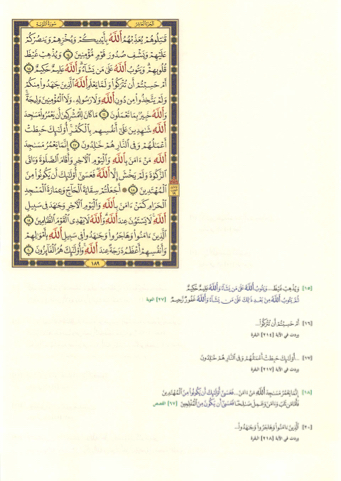 الجزء العاشر
سورة التوبة
قَٰتِلُوهُمْ يُعَذِّبْهُمُ ٱللَّهُ بِأَيْدِيكُمْ وَيُخْزِهِمْ وَيَنصُرْكُمْ
عَلَيْهِمْ وَيَشْفِ صُدُورَ قَوْمٍ مُّؤْمِنِينَ ١٤ وَيُذْهِبْ غَيْظَ
قُلُوبِهِمْ وَيَتُوبُ ٱللَّهُ عَلَىٰ مَن يَشَآءُ وَٱللَّهُ عَلِيمٌ حَكِيمٌ ١٥
أَمْ حَسِبْتُمْ أَن تُتْرَكُوا۟ وَلَمَّا يَعْلَمِ ٱللَّهُ ٱلَّذِينَ جَٰهَدُوا۟ مِنكُمْ
وَلَمْ يَتَّخِذُوا۟ مِن دُونِ ٱللَّهِ وَلَا رَسُولِهِۦ وَلَا ٱلْمُؤْمِنِينَ وَلِيجَةً
وَٱللَّهُ خَبِيرٌۢ بِمَا تَعْمَلُونَ ١٦ مَا كَانَ لِلْمُشْرِكِينَ أَن يَعْمُرُوا۟ مَسَٰجِدَ
ٱللَّهِ شَٰهِدِينَ عَلَىٰٓ أَنفُسِهِم بِٱلْكُفْرِ أُو۟لَٰٓئِكَ حَبِطَتْ
أَعْمَٰلُهُمْ وَفِى ٱلنَّارِ هُمْ خَٰلِدُونَ ١٧ إِنَّمَا يَعْمُرُ مَسَٰجِدَ
ٱللَّهِ مَنْ ءَامَنَ بِٱللَّهِ وَٱلْيَوْمِ ٱلْءَاخِرِ وَأَقَامَ ٱلصَّلَوٰةَ وَءَاتَى
ٱلزَّكَوٰةَ وَلَمْ يَخْشَ إِلَّا ٱللَّهَ فَعَسَىٰٓ أُو۟لَٰٓئِكَ أَن يَكُونُوا۟ مِنَ
ٱلْمُهْتَدِينَ ١٨ ۞ أَجَعَلْتُمْ سِقَايَةَ ٱلْحَآجِّ وَعِمَارَةَ ٱلْمَسْجِدِ
ٱلْحَرَامِ كَمَنْ ءَامَنَ بِٱللَّهِ وَٱلْيَوْمِ ٱلْءَاخِرِ وَجَٰهَدَ فِى سَبِيلِ
ٱللَّهِ لَا يَسْتَوُۥنَ عِندَ ٱللَّهِ وَٱللَّهُ لَا يَهْدِى ٱلْقَوْمَ ٱلظَّٰلِمِينَ ١٩
ٱلَّذِينَ ءَامَنُوا۟ وَهَاجَرُوا۟ وَجَٰهَدُوا۟ فِى سَبِيلِ ٱللَّهِ بِأَمْوَٰلِهِمْ
وَأَنفُسِهِمْ أَعْظَمُ دَرَجَةً عِندَ ٱللَّهِ وَأُو۟لَٰٓئِكَ هُمُ ٱلْفَآئِزُونَ ٢٠
١٨٩
[١٥] وَيُذْهِبْ غَيْظَ... وَيَتُوبُ ٱللَّهُ عَلَىٰ مَن يَشَآءُ وَٱللَّهُ عَلِيمٌ حَكِيمٌ
ثُمَّ يَتُوبُ ٱللَّهُ مِنۢ بَعْدِ ذَٰلِكَ عَلَىٰ مَن يَشَآءُ وَٱللَّهُ غَفُورٌ رَّحِيمٌ [٢٧] التوبة
[١٦] أَمْ حَسِبْتُمْ أَن تُتْرَكُوا۟...
وردت في الآية [٢١٤] البقرة
[١٧] ...أُو۟لَٰٓئِكَ حَبِطَتْ أَعْمَٰلُهُمْ وَفِى ٱلنَّارِ هُمْ خَٰلِدُونَ
وردت في الآية [٢١٧] البقرة
[١٨] إِنَّمَا يَعْمُرُ مَسَٰجِدَ ٱللَّهِ مَنْ ءَامَنَ... فَعَسَىٰٓ أُو۟لَٰٓئِكَ أَن يَكُونُوا۟ مِنَ ٱلْمُهْتَدِينَ
فَأَمَّا مَن تَابَ وَءَامَنَ وَعَمِلَ صَٰلِحًا فَعَسَىٰٓ أَن يَكُونَ مِنَ ٱلْمُفْلِحِينَ [٦٧] القصص
[٢٠] ٱلَّذِينَ ءَامَنُوا۟ وَهَاجَرُوا۟ وَجَٰهَدُوا۟...
وردت في الآية [٢١٨] البقرة